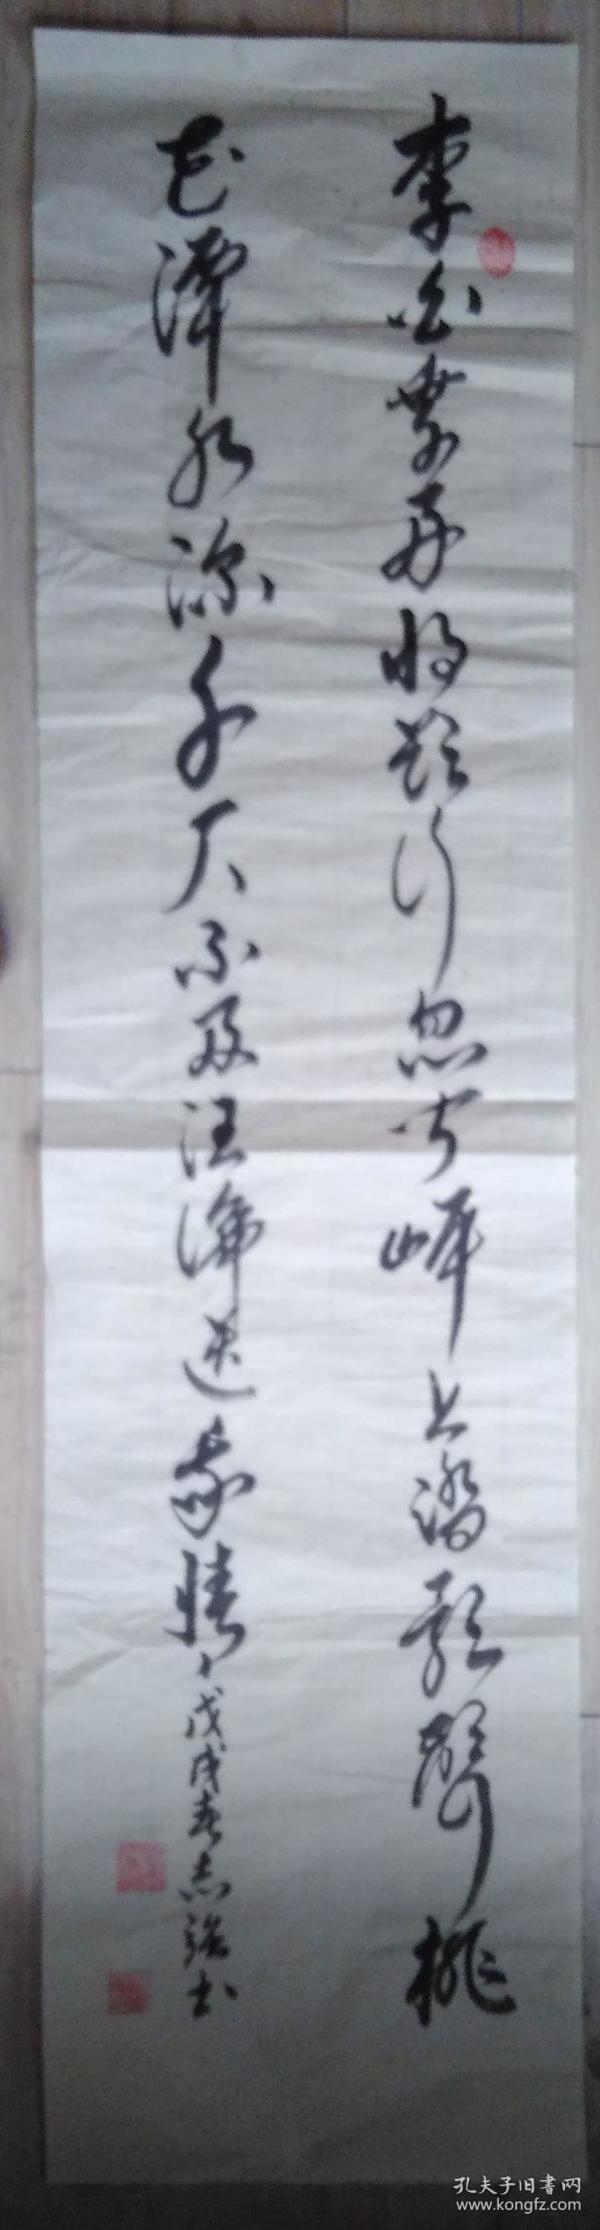 李白乘舟将欲行忽闻岸上踏歌聲桃
花潭水深千尺不及汪倫送我情戊戌春志书
孔夫子旧書网
www.kongfz.com